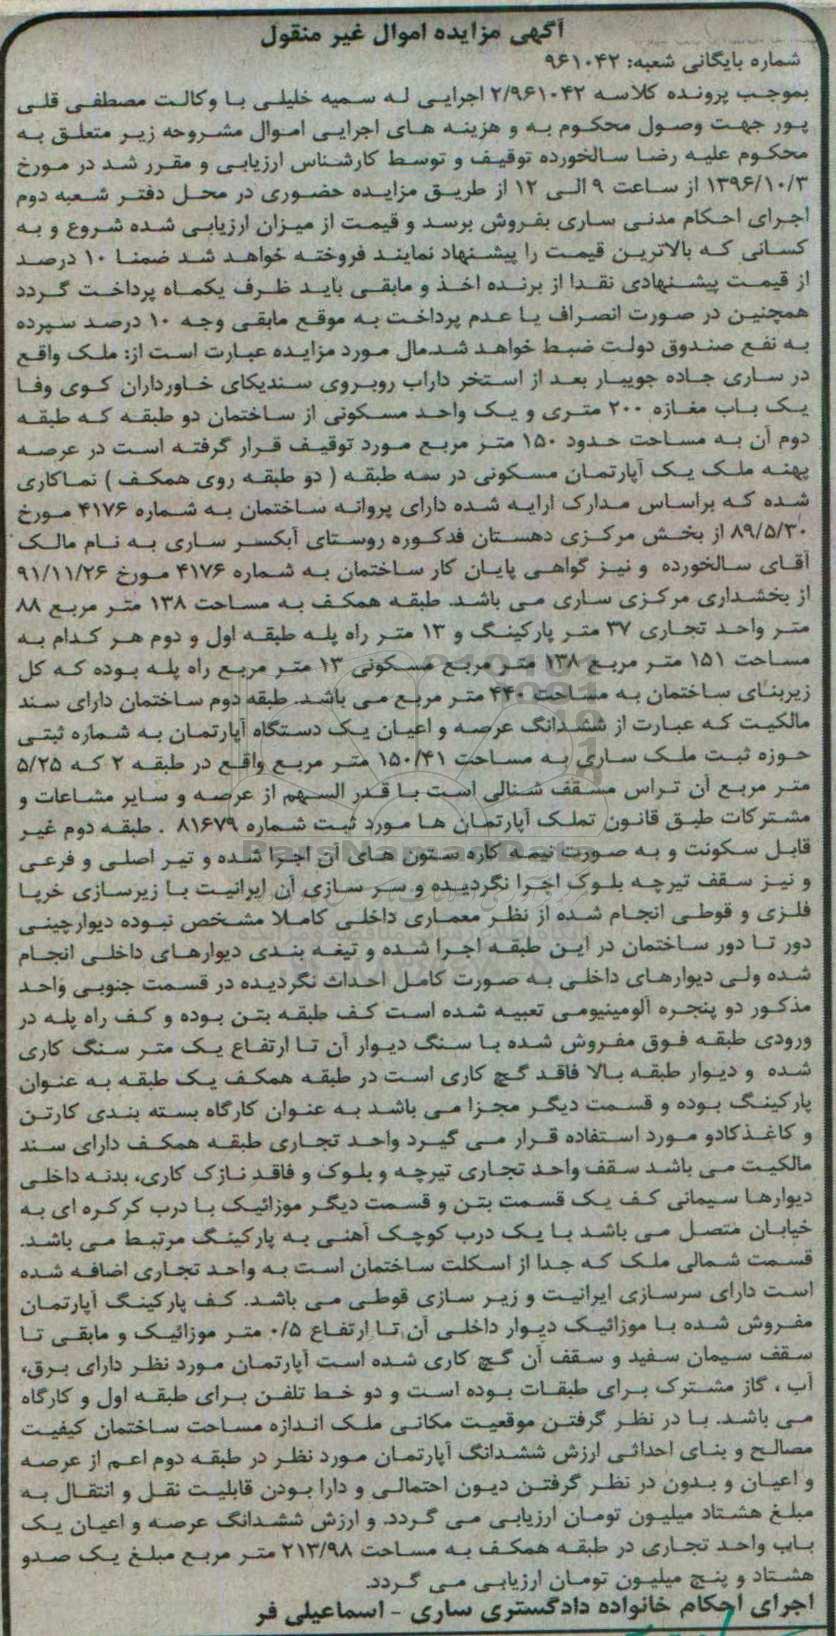 آگهی مزایده اموال غیر منقول
شماره بایگانی شعبه: ۹۶۱۰۴۲
بموجب پرونده کلاسه ۲/۹۶۱۰۴۲ اجرایی له سمیه خلیلی با وکالت مصطفی قلی
پور جهت وصول محکوم به و هزینه های اجرایی اموال مشروحه زیر متعلق به
محکوم علیه رضا سالخورده توقیف و توسط کارشناس ارزیابی و مقرر شد در مورخ
۱۳۹۶/۱۰/۳ از ساعت ۹ الی ۱۲ از طریق مزایده حضوری در محل دفتر شعبه دوم
اجرای احکام مدنی ساری بفروش برسد و قیمت از میزان ارزیابی شده شروع و به
کسانی که بالاترین قیمت را پیشنهاد نمایند فروخته خواهد شد ضمنا ۱۰ درصد
از قیمت پیشنهادی نقدا از برنده اخذ و مابقی باید ظرف یکماه پرداخت گردد
همچنین در صورت انصراف یا عدم پرداخت به موقع مابقی وجه ۱۰ درصد سپرده
به نفع صندوق دولت ضبط خواهد شد.مال مورد مزایده عبارت است از: ملک واقع
در ساری جاده جویبار بعد از استخر داراب روبروی سندیکای خاورداران کوی وفا
یک باب مغازه ۲۰۰ متری و یک واحد مسکونی از ساختمان دو طبقه که طبقه
دوم آن به مساحت حدود ۱۵۰ متر مربع مورد توقیف قرار گرفته است در عرصه
پهنه ملک یک آپارتمان مسکونی در سه طبقه ( دو طبقه روی همکف ) نماکاری
شده که براساس مدارک ارایه شده دارای پروانه ساختمان به شماره ۴۱۷۶ مورخ
۸۹/۵/۳۰ از بخش مرکزی دهستان فدکوره روستای آبکسر ساری به نام مالک
آقای سالخورده و نیز گواهی پایان کار ساختمان به شماره ۴۱۷۶ مورخ ۹۱/۱۱/۲۶
از بخشداری مرکزی ساری می باشد. طبقه همکف به مساحت ۱۳۸ متر مربع ۸۸
متر واحد تجاری ۳۷ متر پارکینگ و ۱۳ متر راه پله طبقه اول و دوم هر کدام به
مساحت ۱۵۱ متر مربع ۱۳۸ متر مربع مسکونی ۱۳ متر مربع راه پله بوده که کل
زیربنای ساختمان به مساحت ۴۴۰ متر مربع می باشد. طبقه دوم ساختمان دارای سند
مالکیت که عبارت از ششدانگ عرصه و اعیان یک دستگاه آپارتمان به شماره ثبتی
حوزه ثبت ملک ساری به مساحت ۱۵۰/۴۱ متر مربع واقع در طبقه ۲ که ۵/۲۵
متر مربع آن تراس مسقف شنالی است با قدر السهم از عرصه و سایر مشاعات و
مشترکات طبق قانون تملک آپارتمان ها مورد ثبت شماره ۸۱۶۷۹ . طبقه دوم غیر
قابل سکونت و به صورت نیمه کاره ستون های آن اجرا شده و تیر اصلی و فرعی
و نیز سقف تیرچه بلوک اجرا نگردیده و سر سازی آن ایرانیت با زیرسازی خرپا
فلزی و قوطی انجام شده از نظر معماری داخلی کاملا مشخص نبوده دیوارچینی
دور تا دور ساختمان در این طبقه اجرا شده و تیغه بندی دیوارهای داخلی انجام
شده ولی دیوارهای داخلی به صورت کامل احداث نگردیده در قسمت جنوبی واحد
مذکور دو پنجره آلومینیومی تعبیه شده است کف طبقه بتن بوده و کف راه پله در
ورودی طبقه فوق مفروش شده با سنگ دیوار آن تا ارتفاع یک متر سنگ کاری
شده و دیوار طبقه بالا فاقد گچ کاری است در طبقه همکف یک طبقه به عنوان
پارکینگ بوده و قسمت دیگر مجزا می باشد به عنوان کارگاه بسته بندی کارتن
و کاغذکادو مورد استفاده قرار می گیرد واحد تجاری طبقه همکف دارای سند
مالکیت می باشد سقف واحد تجاری تیرچه و بلوک و فاقد نازک کاری، بدنه داخلی
دیوارها سیمانی کف یک قسمت بتن و قسمت دیگر موزائیک با درب کرکره ای به
خیابان متصل می باشد با یک درب کوچک آهنی به پارکینگ مرتبط می باشد.
قسمت شمالی ملک که جدا از اسکلت ساختمان است به واحد تجاری اضافه شده
است دارای سرسازی ایرانیت و زیر سازی قوطی می باشد. کف پارکینگ آپارتمان
مفروش شده با موزائیک دیوار داخلی آن تا ارتفاع ۰/۵ متر موزائیک و مابقی تا
سقف سیمان سفید و سقف آن گچ کاری شده است آپارتمان مورد نظر دارای برق،
آب ، گاز مشترک برای طبقات بوده است و دو خط تلفن برای طبقه اول و کارگاه
می باشد. با در نظر گرفتن موقعیت مکانی ملک اندازه مساحت ساختمان کیفیت
مصالح و بنای احداثی ارزش ششدانگ آپارتمان مورد نظر در طبقه دوم اعم از عرصه
و اعیان و بدون در نظر گرفتن دیون احتمالی و دارا بودن قابلیت نقل و انتقال به
مبلغ هشتاد میلیون تومان ارزیابی می گردد. و ارزش ششدانگ عرصه و اعیان یک
باب واحد تجاری در طبقه همکف به مساحت ۲۱۳/۹۸ متر مربع مبلغ یک صدو
هشتاد و پنج میلیون تومان ارزیابی می گردد.
اجرای احکام خانواده دادگستری ساری - اسماعیلی فر